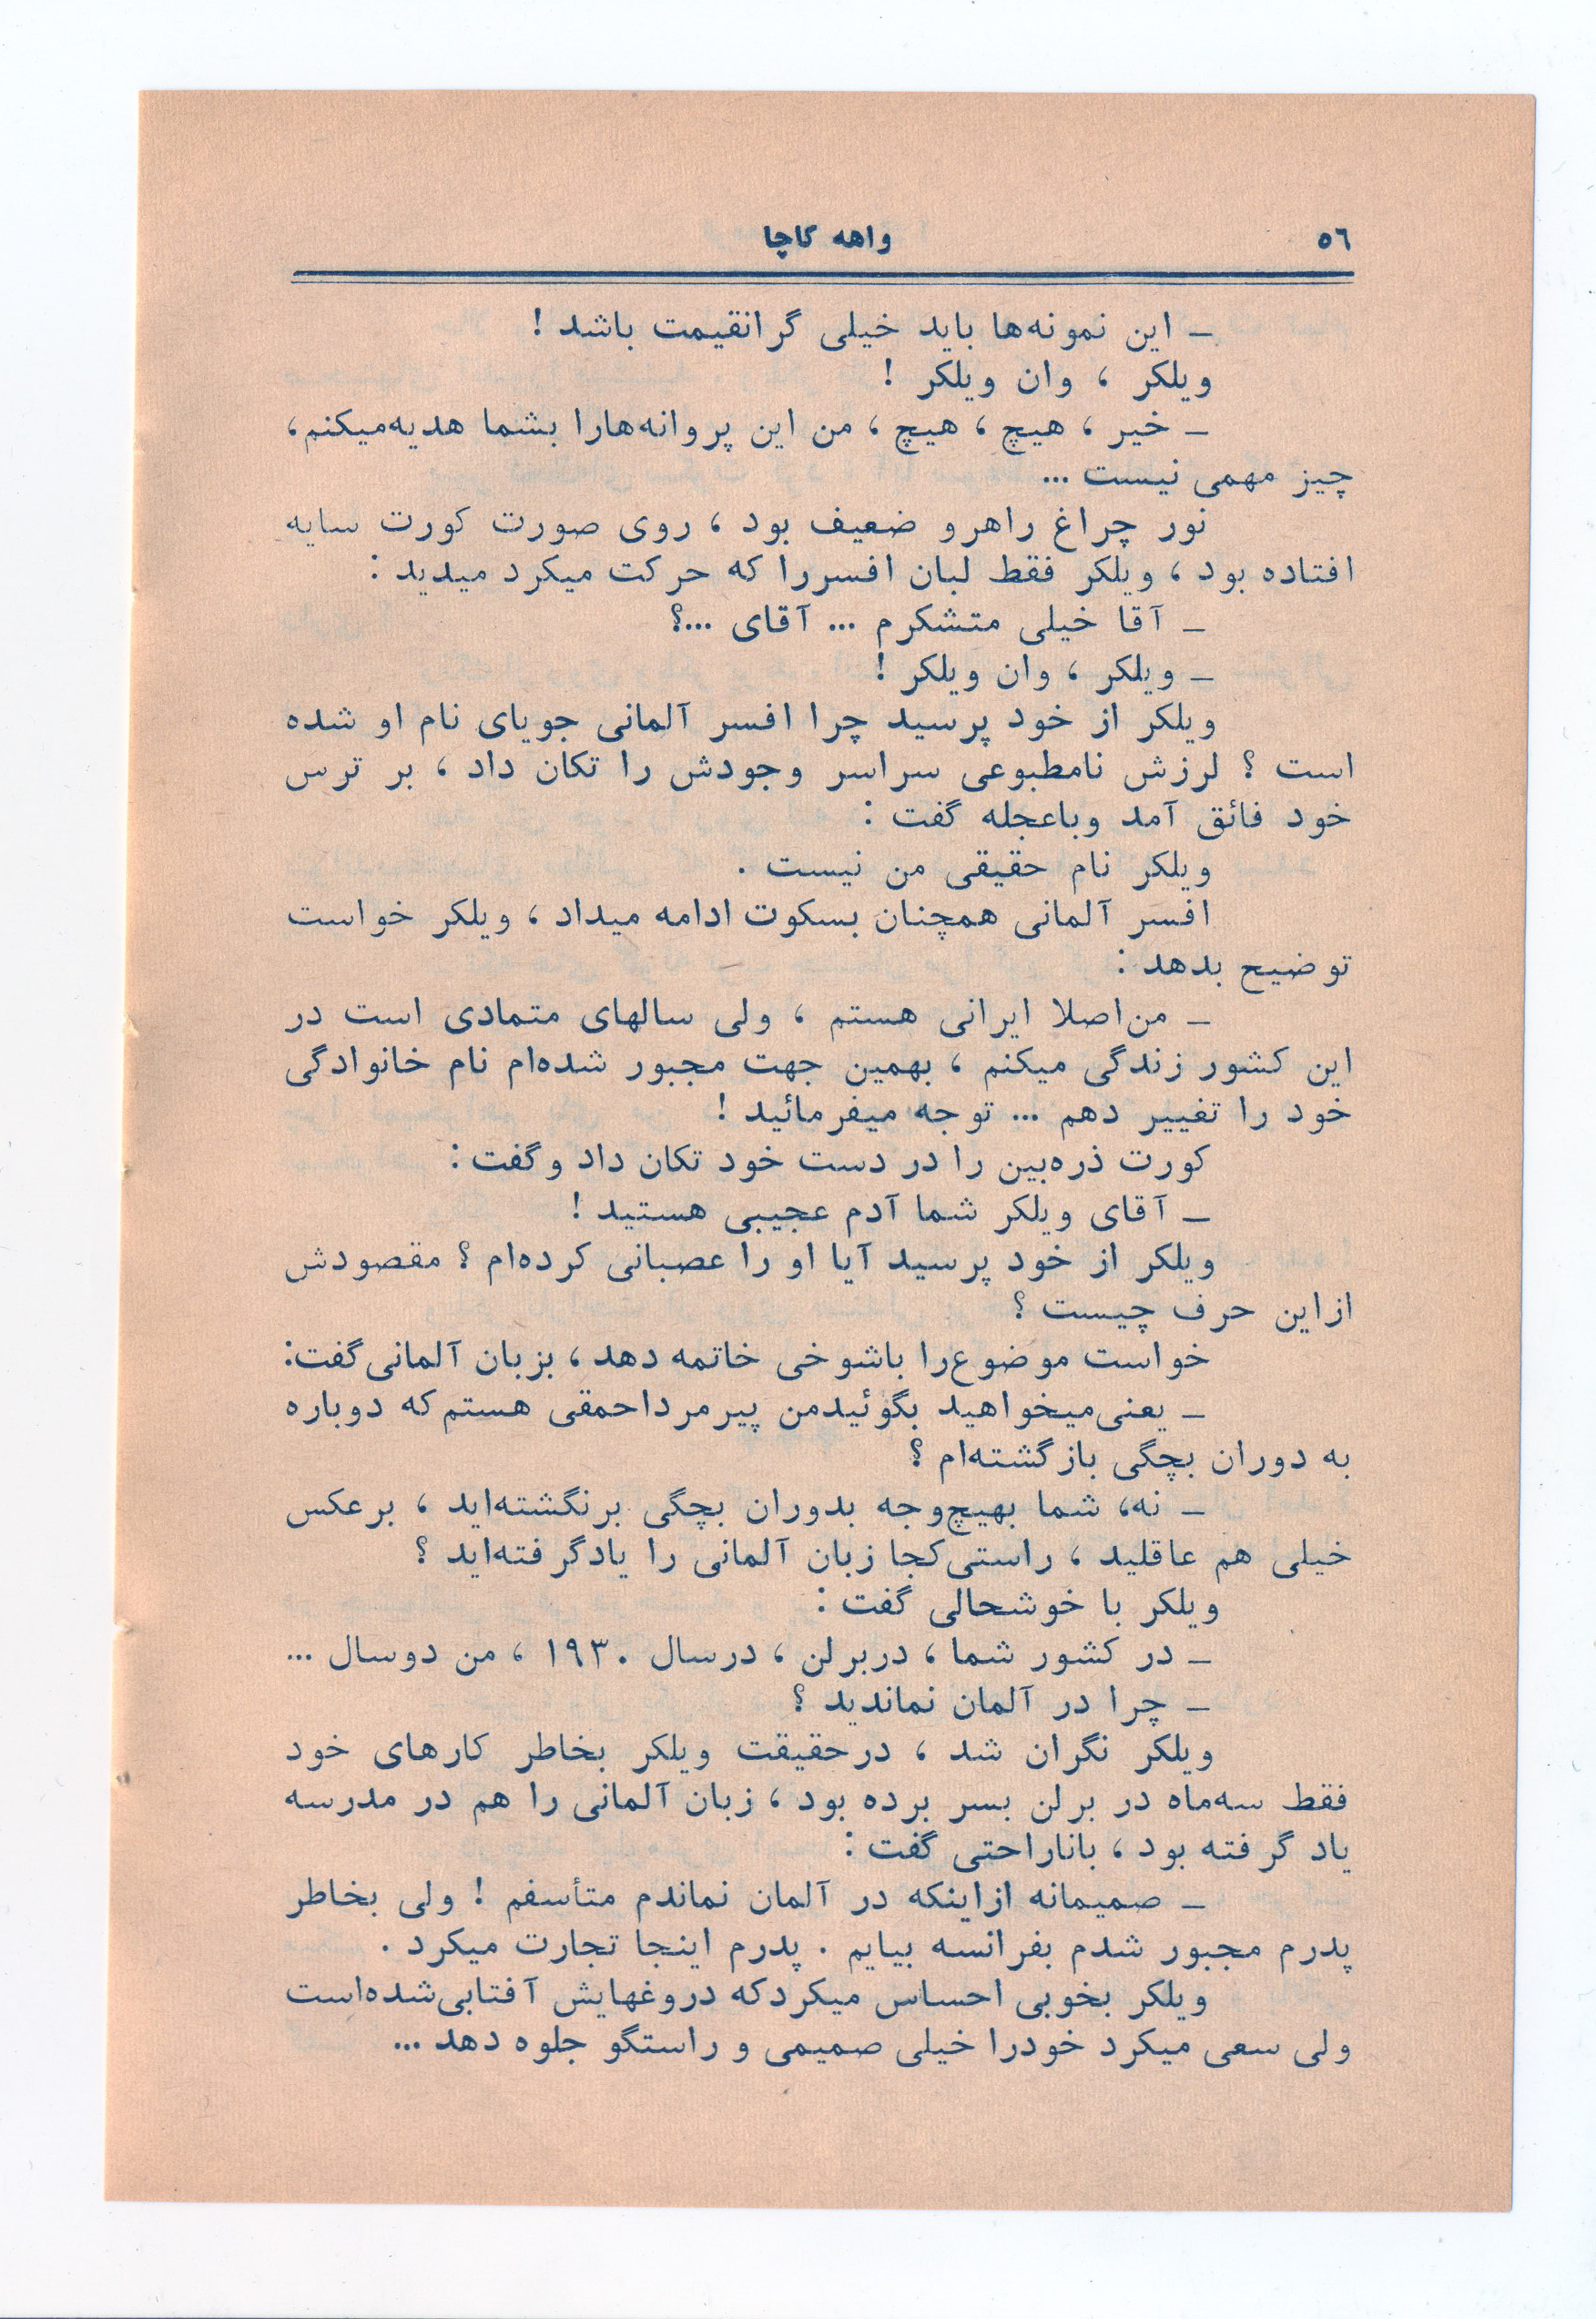 ٥٦
واهه کاچا
ـ این نمونه‌ها باید خیلی گرانقیمت باشد !
ویلکر ، وان ویلکر !
ـ خیر ، هیچ ، هیچ ، من این پروانه‌هارا بشما هدیه‌میکنم،
چیز مهمی نیست ...
نور چراغ راهرو ضعیف بود ، روی صورت کورت سایه
افتاده بود ، ویلکر فقط لبان افسررا که حرکت میکرد میدید :
ـ آقا خیلی متشکرم ... آقای ...؟
ـ ویلکر ، وان ویلکر !
ویلکر از خود پرسید چرا افسر آلمانی جویای نام او شده
است ؟ لرزش نامطبوعی سراسر وجودش را تکان داد ، بر ترس
خود فائق آمد وباعجله گفت :
ویلکر نام حقیقی من نیست .
افسر آلمانی همچنان بسکوت ادامه میداد ، ویلکر خواست
توضیح بدهد :
ـ من‌اصلا ایرانی هستم ، ولی سالهای متمادی است در
این کشور زندگی میکنم ، بهمین جهت مجبور شده‌ام نام خانوادگی
خود را تغییر دهم ... توجه میفرمائید !
کورت ذره‌بین را در دست خود تکان داد وگفت :
ـ آقای ویلکر شما آدم عجیبی هستید !
ویلکر از خود پرسید آیا او را عصبانی کرده‌ام ؟ مقصودش
ازاین حرف چیست ؟
خواست موضوع‌را باشوخی خاتمه دهد ، بزبان آلمانی‌گفت:
ـ یعنی‌میخواهید بگوئیدمن پیرمرداحمقی هستم‌که دوباره
به دوران بچگی بازگشته‌ام ؟
ـ نه، شما بهیچ‌وجه بدوران بچگی برنگشته‌اید ، برعکس
خیلی هم عاقلید ، راستی‌کجا زبان آلمانی را یادگرفته‌اید ؟
ویلکر با خوشحالی گفت :
ـ در کشور شما ، دربرلن ، درسال ۱۹۳۰ ، من دوسال ...
ـ چرا در آلمان نماندید ؟
ویلکر نگران شد ، درحقیقت ویلکر بخاطر کارهای خود
فقط سه‌ماه در برلن بسر برده بود ، زبان آلمانی را هم در مدرسه
یاد گرفته بود ، باناراحتی گفت :
ـ صمیمانه ازاینکه در آلمان نماندم متأسفم ! ولی بخاطر
پدرم مجبور شدم بفرانسه بیایم . پدرم اینجا تجارت میکرد .
ویلکر بخوبی احساس میکردکه دروغهایش آفتابی‌شده‌است
ولی سعی میکرد خودرا خیلی صمیمی و راستگو جلوه دهد ...